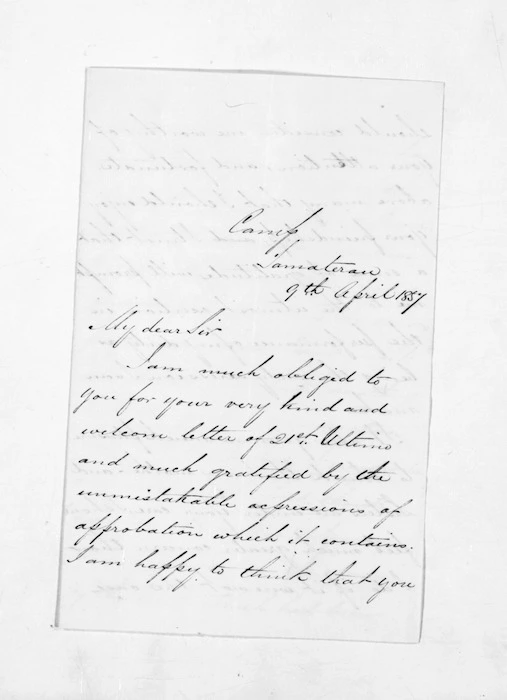 Camp
Tamaterau
9th April 1857
My dear Sir
I am much obliged to
you for your very kind and
welcom letter of 21st Ultimo
and much gratified by the
unmistakable expressions of
approbation which it contains.
I am happy to think that you